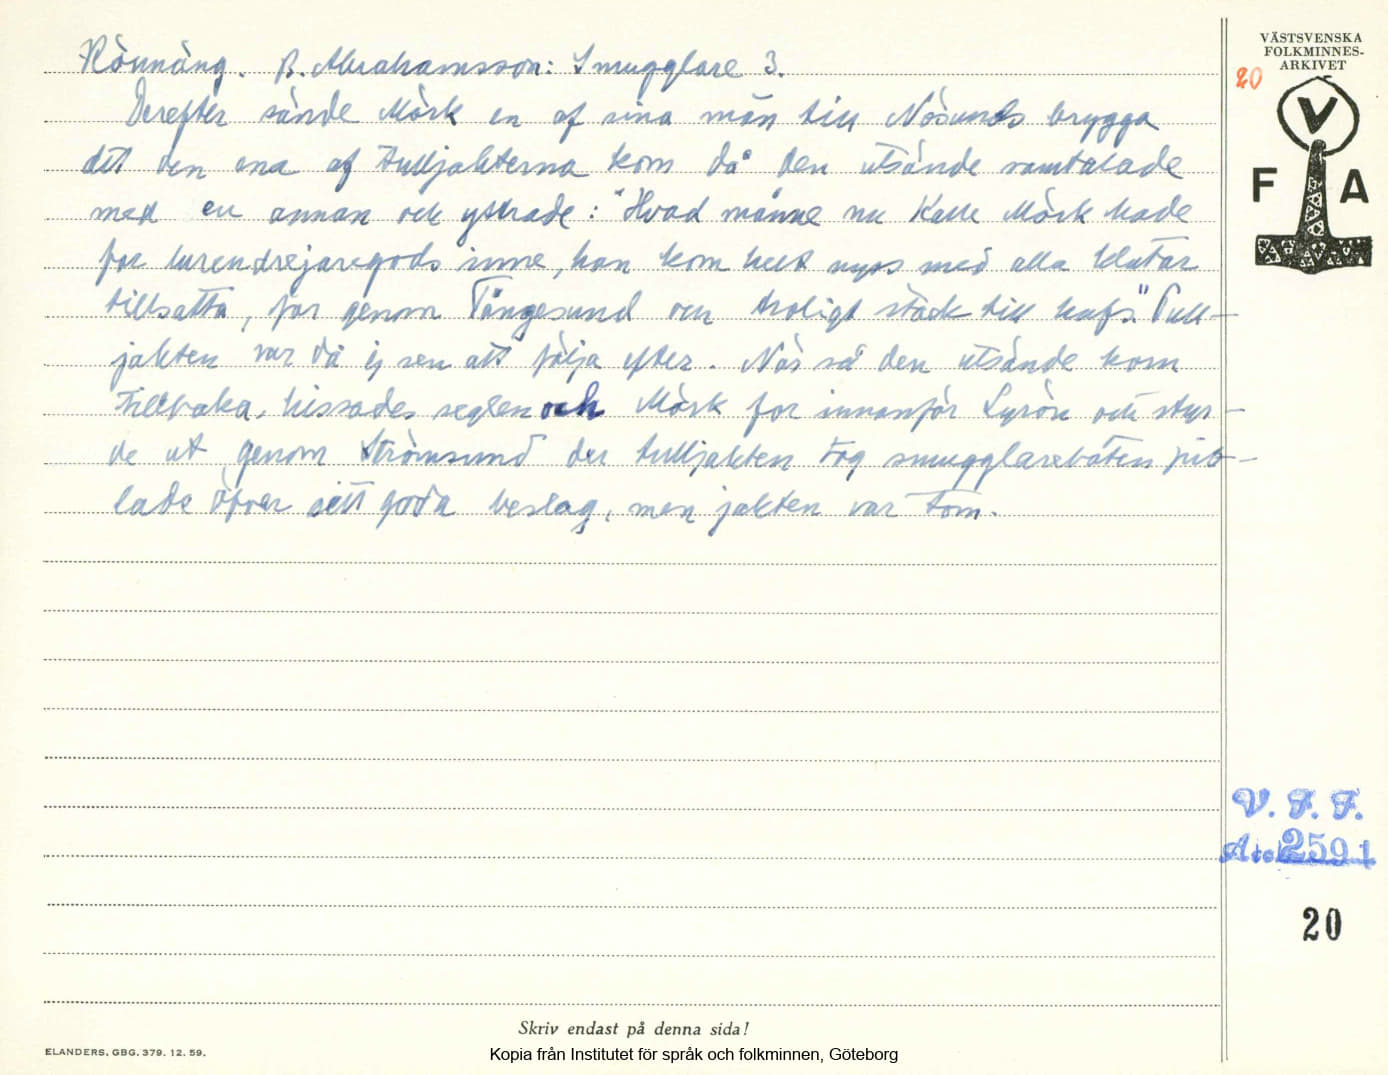 Rönnäng. B. Abrahamsson: Smugglare 3.
Derefter sände Mörk en af sina män till Nösunds brygga
dit den ena af tulljakterna kom då den utsände samtalade
med en annan och yttrade: "Hvad månne nu Kalle Mörk hade
för lurendrejaregods inne, han kom helt nyss med alla klutar
tillsatta, for genom Tångesund och troligt stack till hafs." Tull-
jakten var då ej sen att följa efter. När så den utsände kom
tillbaka, hissades seglen och Mörk for innanför Lyrön och styr-
de ut genom Strömsund der tulljakten tog smugglarebåten jub-
lade öfver sitt goda beslag, men jakten var tom.
VÄSTSVENSKA
FOLKMINNES-
ARKIVET
20
V
F A
V. F. F.
2591
20
Skriv endast på denna sida!
ELANDERS, GBG. 379. 12. 59.
Kopia från Institutet för språk och folkminnen, Göteborg